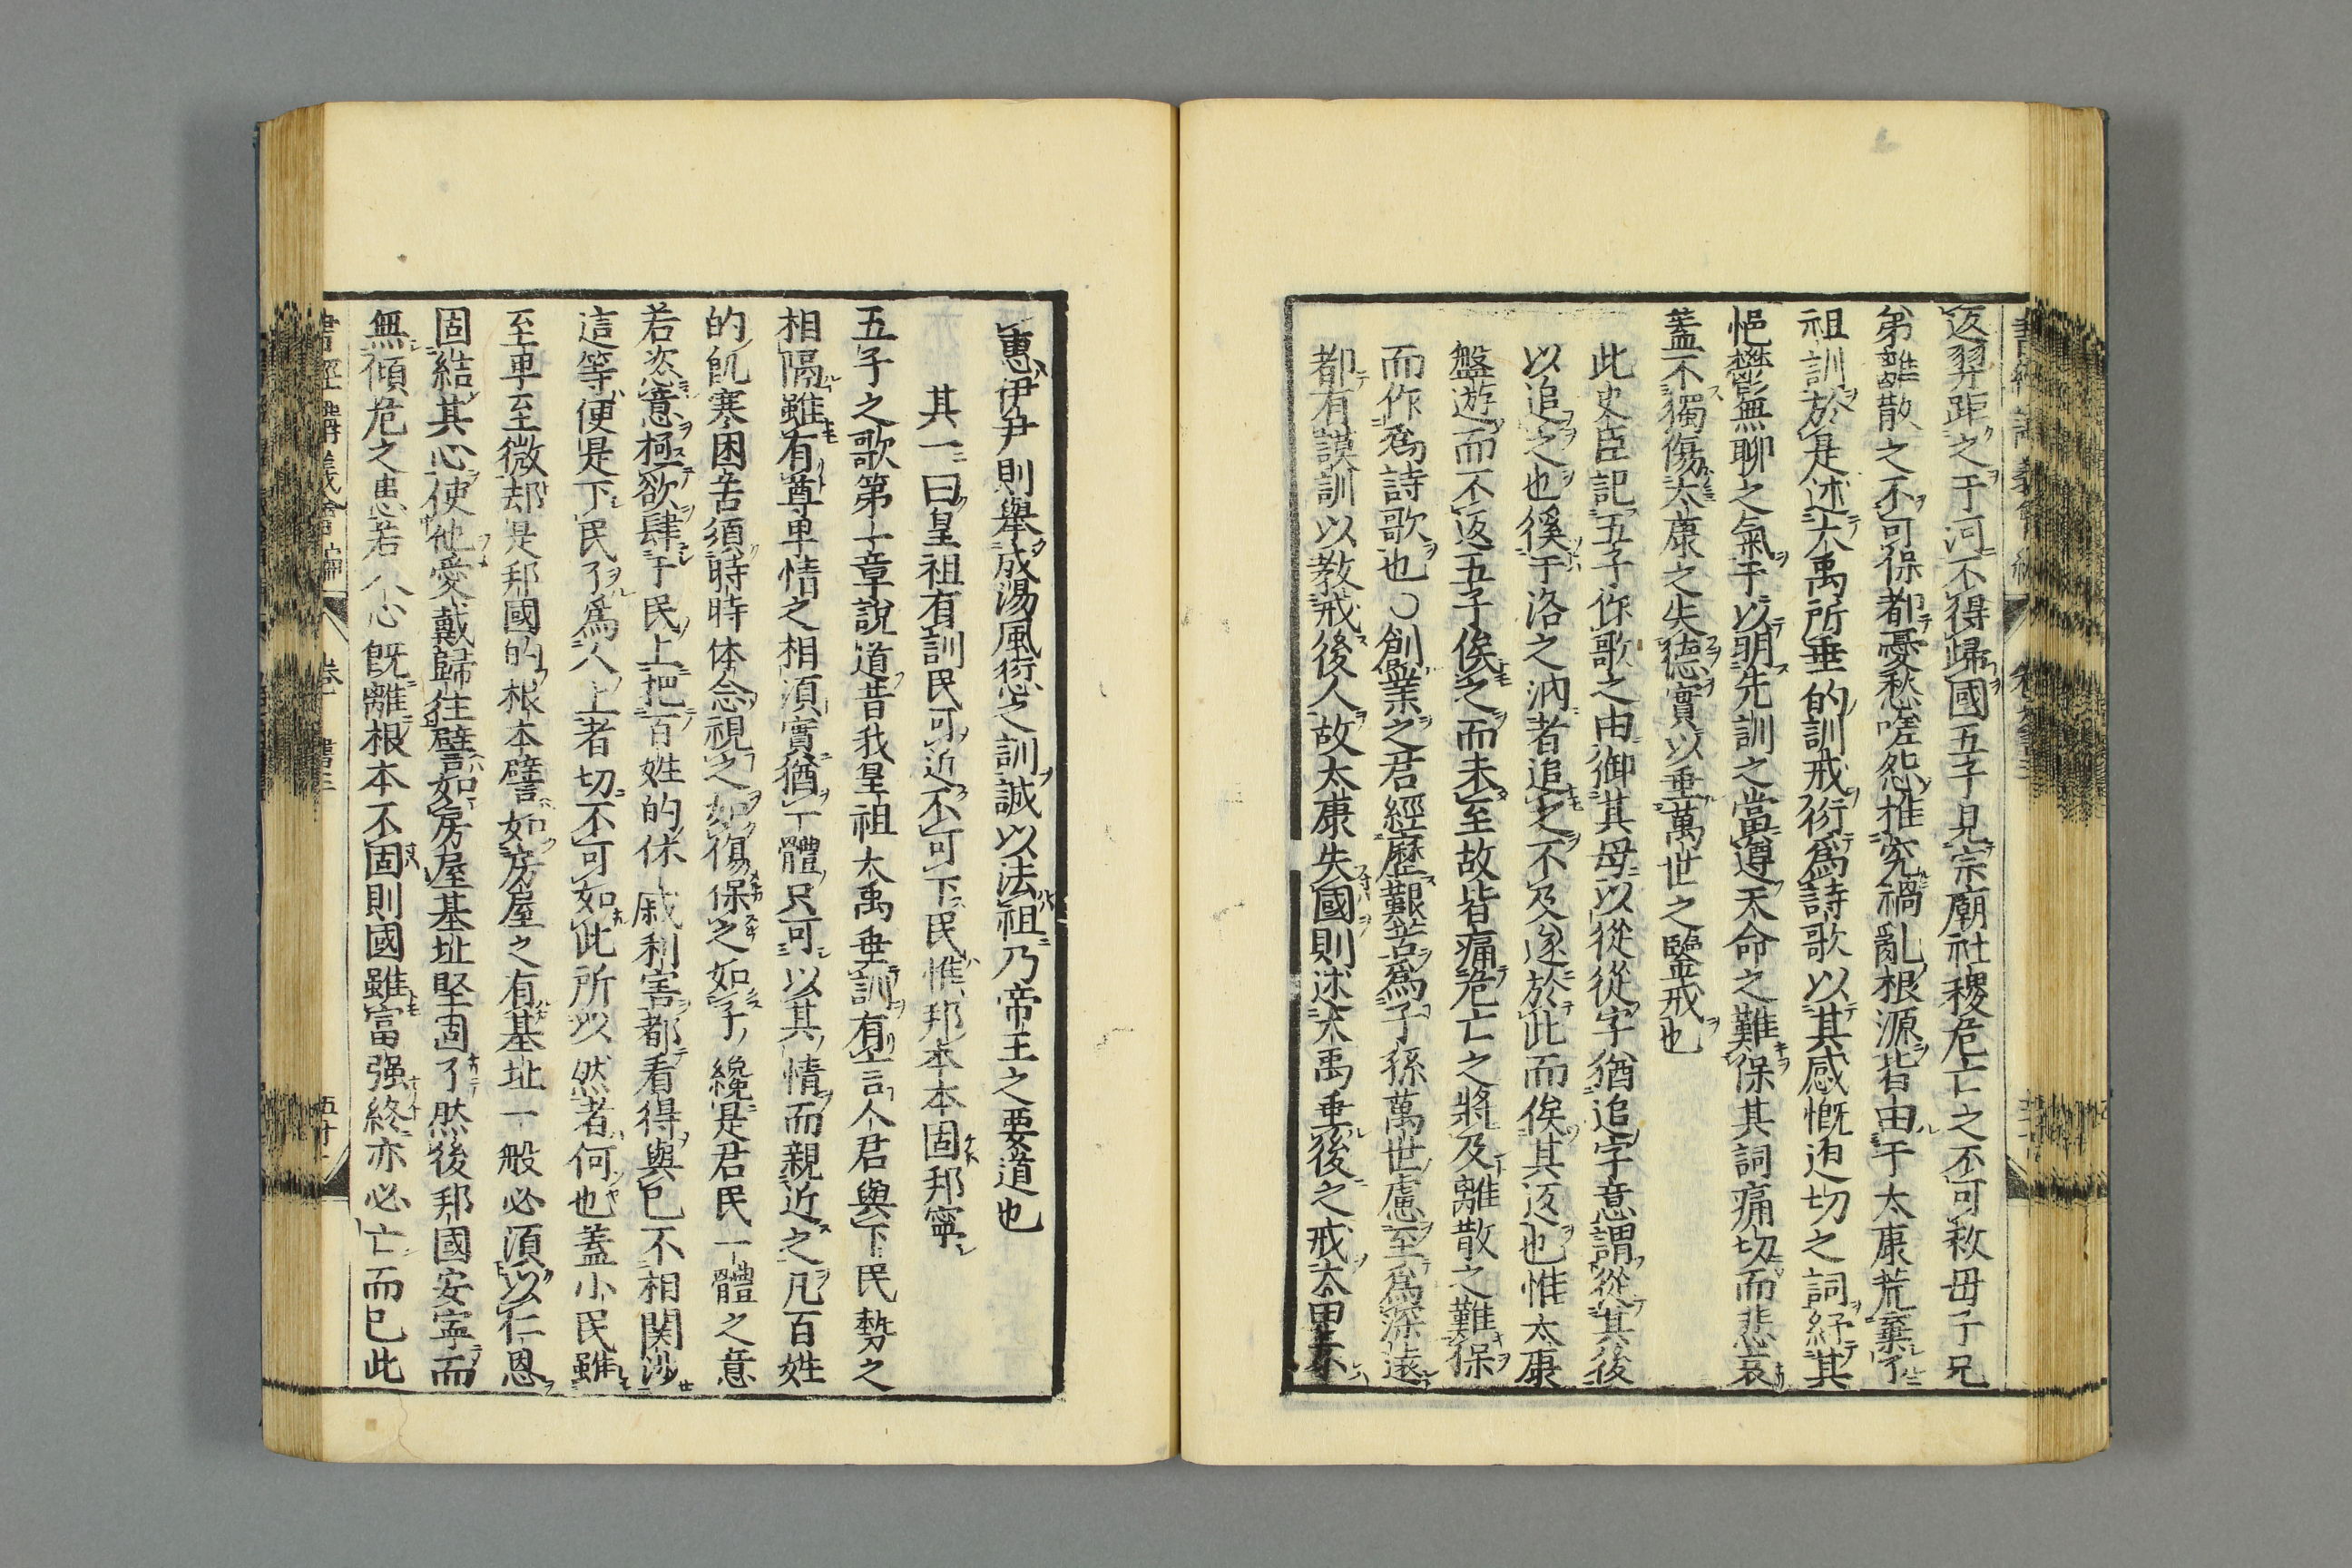 返羿距之于河不得歸國五子見宗廟社稷危亡之不可救母子兄
弟離散之不可保都憂愁嗟怨推究禍亂根源皆由于太康荒棄了
祖訓於是述大禹所垂的訓戒衍爲詩歌以其感慨迫切之詞紓其
悒鬱無聊之氣于以明先訓之當遵天命之難保其詞痛切而悲哀
蓋不獨傷太康之失德實以垂萬世之鑒戒也
此史臣記五子作歌之由御其母以從從字猶追字意謂從其後
以追之也徯于洛之汭者追之不及遂於此而俟其返也惟太康
盤遊而不返五子俟之而未至故皆痛危亡之將及離散之難保
而作爲詩歌也○創業之君經歷艱苦爲子孫萬世慮至爲深遠
都有謨訓以教戒後人故太康失國則述大禹垂後之戒太甲
惠伊尹則舉成湯風愆之訓誠以法祖乃帝王之要道也
其一曰皇祖有訓民可近不可下民惟邦本本固邦寧
五子之歌第一章說道昔我皇祖大禹垂訓有言人君與下民勢之
相隔雖有尊卑情之相須實猶一體只可以其情而親近之凡百姓
的飢寒困苦須時時体念視之如傷保之如子纔是君民一體之意
若恣意極欲肆于民上把百姓的休戚利害都看得與己不相関涉
這等便是下民了爲人上者切不可如此所以然者何也蓋小民雖
至卑至微却是邦國的根本譬如房屋之有基址一般必須以仁恩
固結其心使他愛戴歸往譬如房屋基址堅固了然後邦國安寧而
無傾危之患若人心既離根本不固則國雖富强終亦必亡而已此
書經講義會編 卷 書三 五十